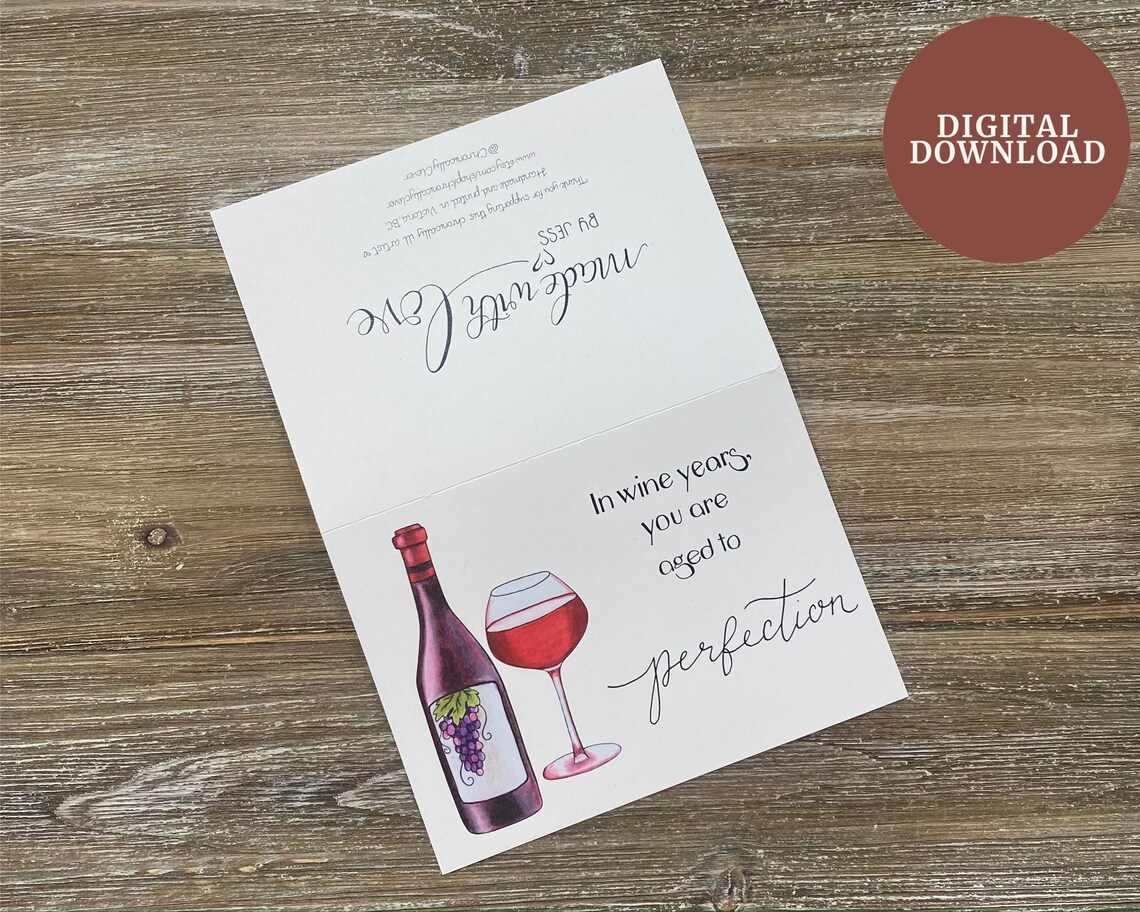 DIGITAL
DOWNLOAD
In wine years,
you are
aged to
perfection
made with love
BY JESS
Thank you for supporting this chronically ill artist ♡
Handmade and printed in Victoria, BC
www.etsy.com/shop/chronicallyclover
@ChronicallyClover